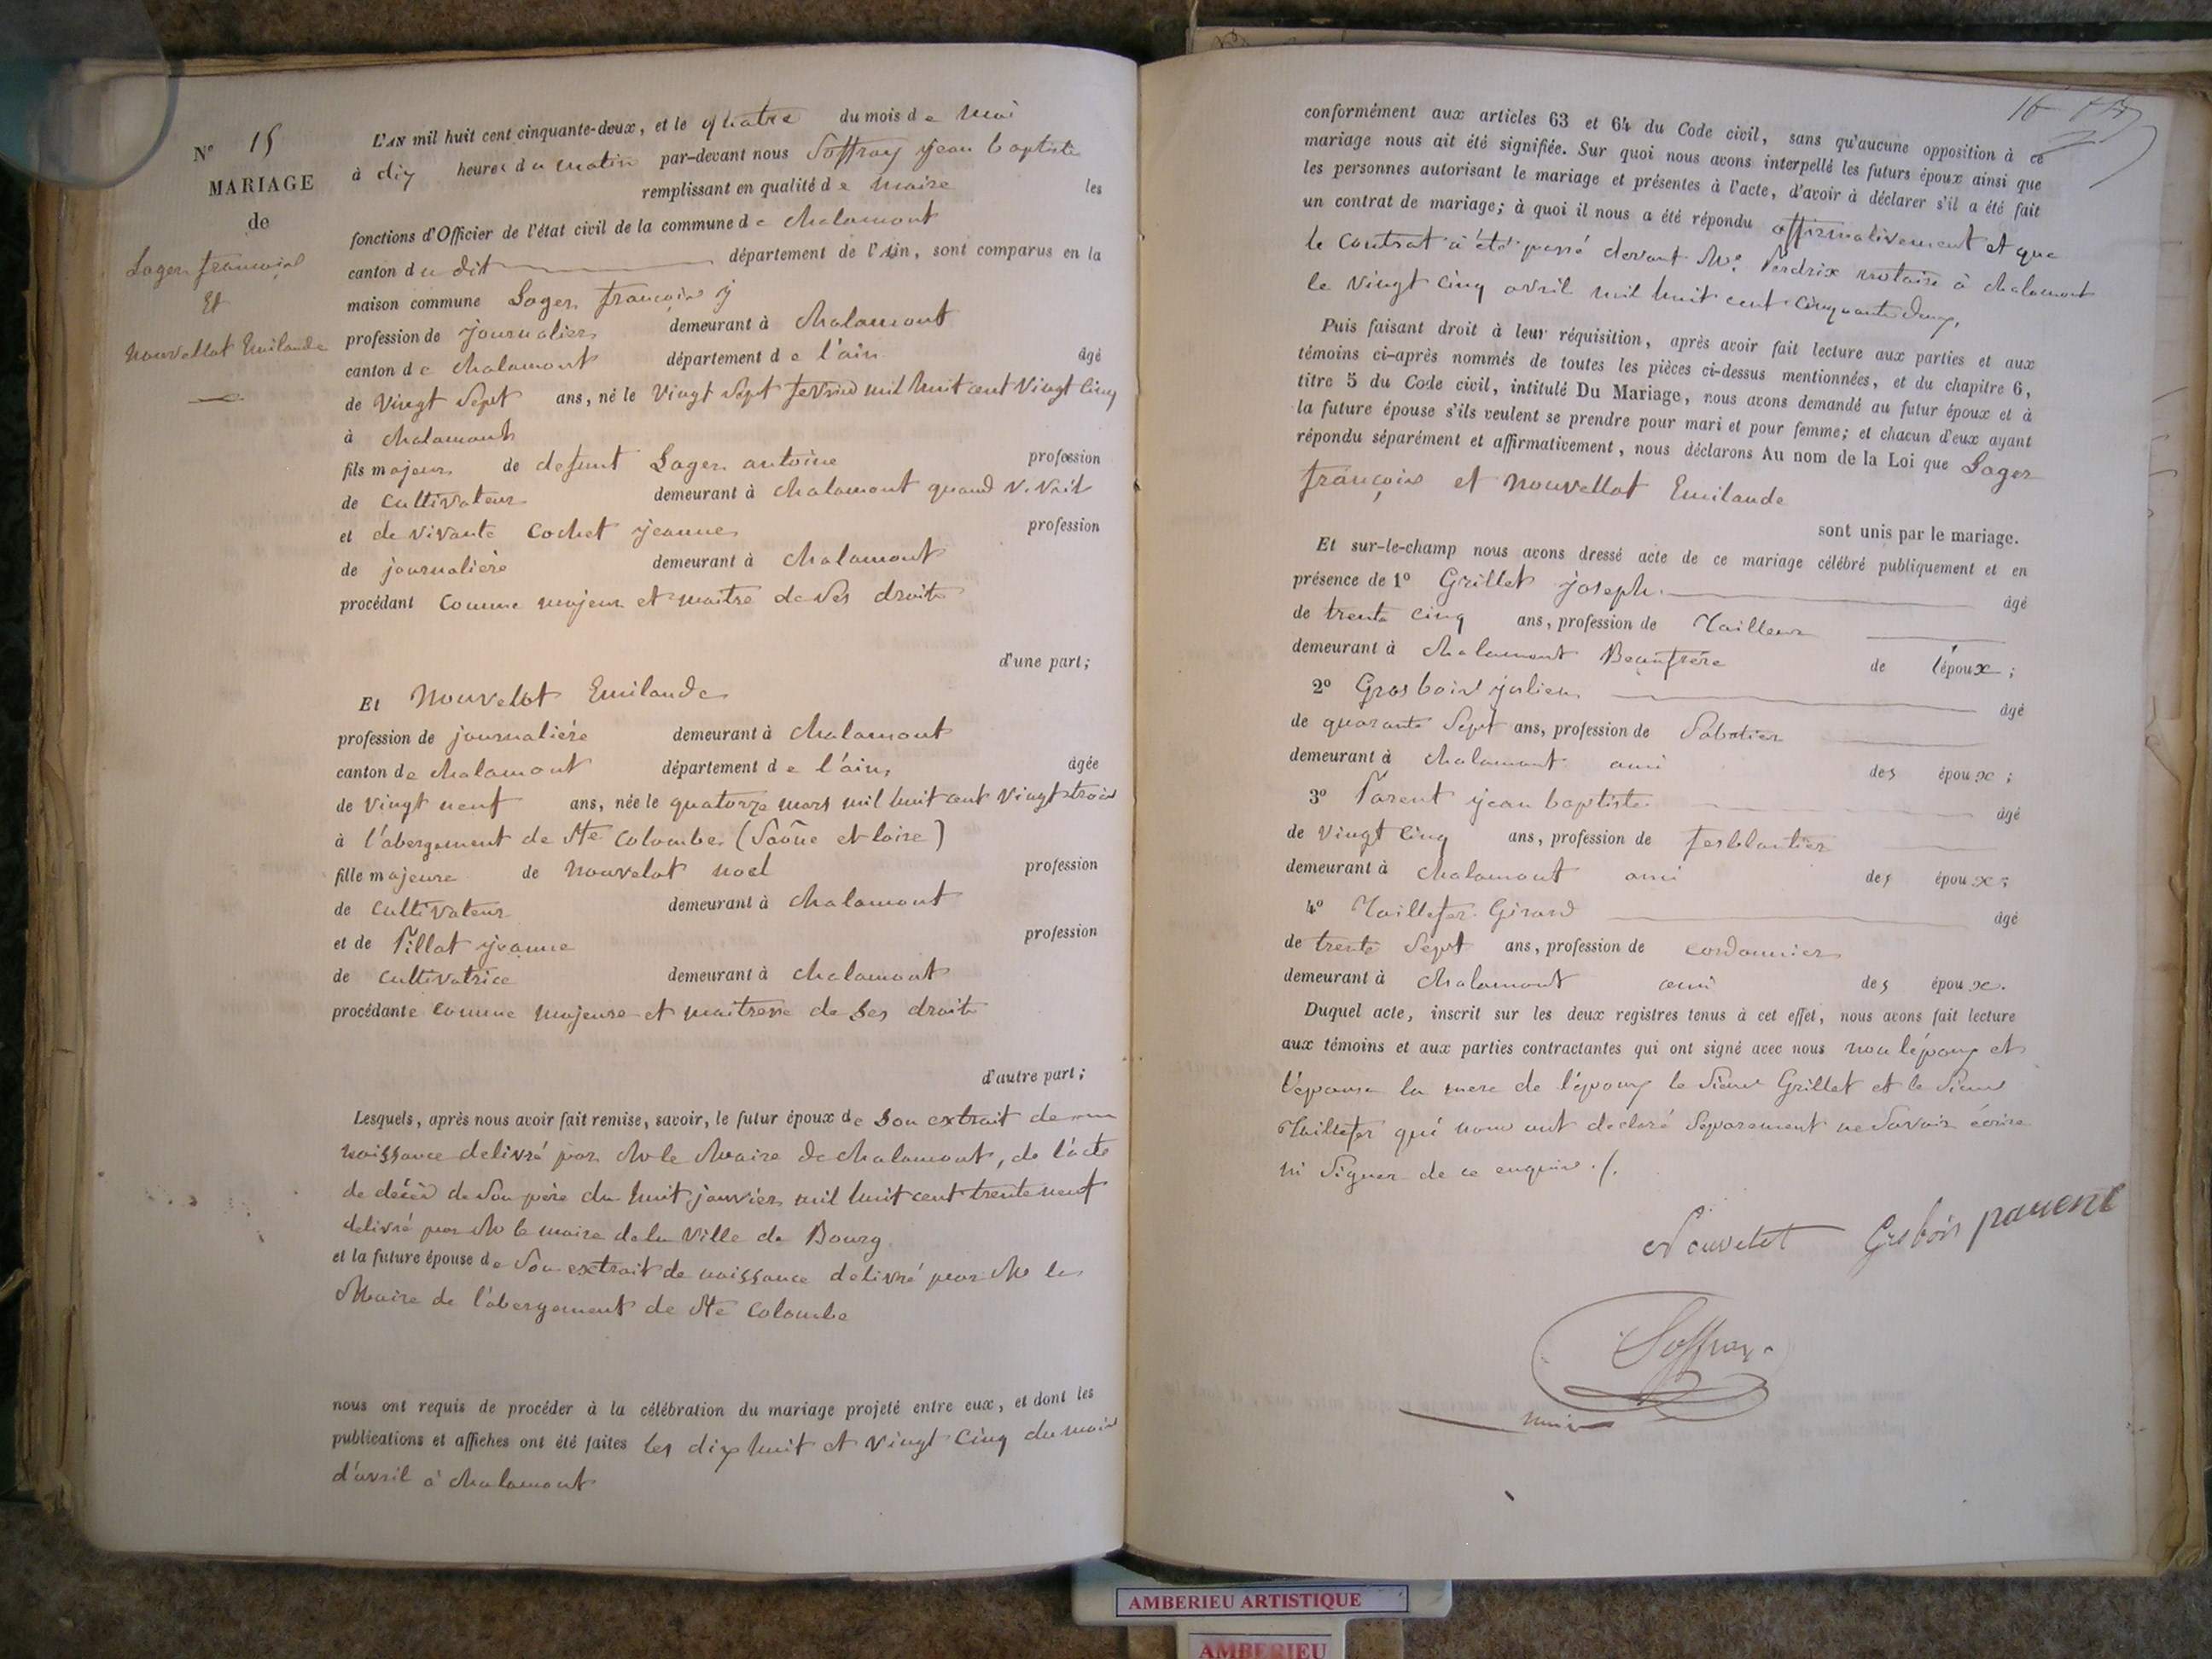 N° 15
MARIAGE
de
Lager françois
Et
Nouvellot Emilande
L'AN mil huit cent cinquante-deux, et le quatre du mois de Mai
à dix heures du matin par-devant nous Soffray jean baptiste
remplissant en qualité de Maire les
fonctions d'Officier de l'état civil de la commune de chalamont
canton du dit département de l'Ain, sont comparus en la
maison commune Lager françois
profession de journalier demeurant à chalamont
canton de chalamont département de l'ain âgé
de vingt sept ans, né le vingt sept fevrier mil huit cent vingt cinq
à chalamont
fils majeur de defunt Lager antoine profession
de cultivateur demeurant à chalamont quand vivait
et de vivante Cochet jeanne profession
de journalière demeurant à chalamont
procédant comme majeur et maitre de ses droits
d'une part;
Et Nouvelot Emilande
profession de journalière demeurant à chalamont
canton de chalamont département de l'ain âgée
de vingt neuf ans, née le quatorze mars mil huit cent vingt trois
à l'abergement de Ste Colombe (Saône et loire)
fille majeure de Nouvelot noel profession
de cultivateur demeurant à chalamont
et de Pillot jeanne profession
de cultivatrice demeurant à chalamont
procédante comme majeure et maitresse de ses droits
d'autre part;
Lesquels, après nous avoir fait remise, savoir, le futur époux de son extrait de
naissance delivré par Mr le Maire de chalamont, de l'acte
de décès de son père du huit janvier mil huit cent trente neuf
delivré par Mr le maire de la ville de Bourg
et la future épouse de son extrait de naissance delivré par Mr le
Maire de l'abergement de Ste Colombe
nous ont requis de procéder à la célébration du mariage projeté entre eux, et dont les
publications et affiches ont été faites les dix huit et vingt cinq du mois
d'avril à chalamont
16
conformément aux articles 63 et 64 du Code civil, sans qu'aucune opposition à ce
mariage nous ait été signifiée. Sur quoi nous avons interpellé les futurs époux ainsi que
les personnes autorisant le mariage et présentes à l'acte, d'avoir à déclarer s'il a été fait
un contrat de mariage; à quoi il nous a été répondu affirmativement et que
le contrat a été passé devant Me Perdrix notaire à chalamont
le vingt cinq avril mil huit cent cinquante deux,
Puis faisant droit à leur réquisition, après avoir fait lecture aux parties et aux
témoins ci-après nommés de toutes les pièces ci-dessus mentionnées, et du chapitre 6,
titre 5 du Code civil, intitulé Du Mariage, nous avons demandé au futur époux et à
la future épouse s'ils veulent se prendre pour mari et pour femme; et chacun d'eux ayant
répondu séparément et affirmativement, nous déclarons Au nom de la Loi que Lager
françois et Nouvellot Emilande
sont unis par le mariage.
Et sur-le-champ nous avons dressé acte de ce mariage célébré publiquement et en
présence de 1° Grillet joseph âgé
de trente cinq ans, profession de Tailleur
demeurant à chalamont Beaufrère de l'époux;
2° Grosbois julien âgé
de quarante sept ans, profession de Sabotier
demeurant à chalamont ami des époux;
3° Parent jean baptiste âgé
de vingt cinq ans, profession de ferblantier
demeurant à chalamont ami des époux;
4° Taillefer Girard âgé
de trente sept ans, profession de cordonnier
demeurant à chalamont ami des époux.
Duquel acte, inscrit sur les deux registres tenus à cet effet, nous avons fait lecture
aux témoins et aux parties contractantes qui ont signé avec nous non l'époux et
l'épouse la mere de l'époux le sieur Grillet et le sieur
Taillefer qui nous ont declaré séparement ne savoir écrire
ni signer de ce enquis ./.
Nouvelot Grosbois parent
Soffray
maire
AMBERIEU ARTISTIQUE
AMBERIEU